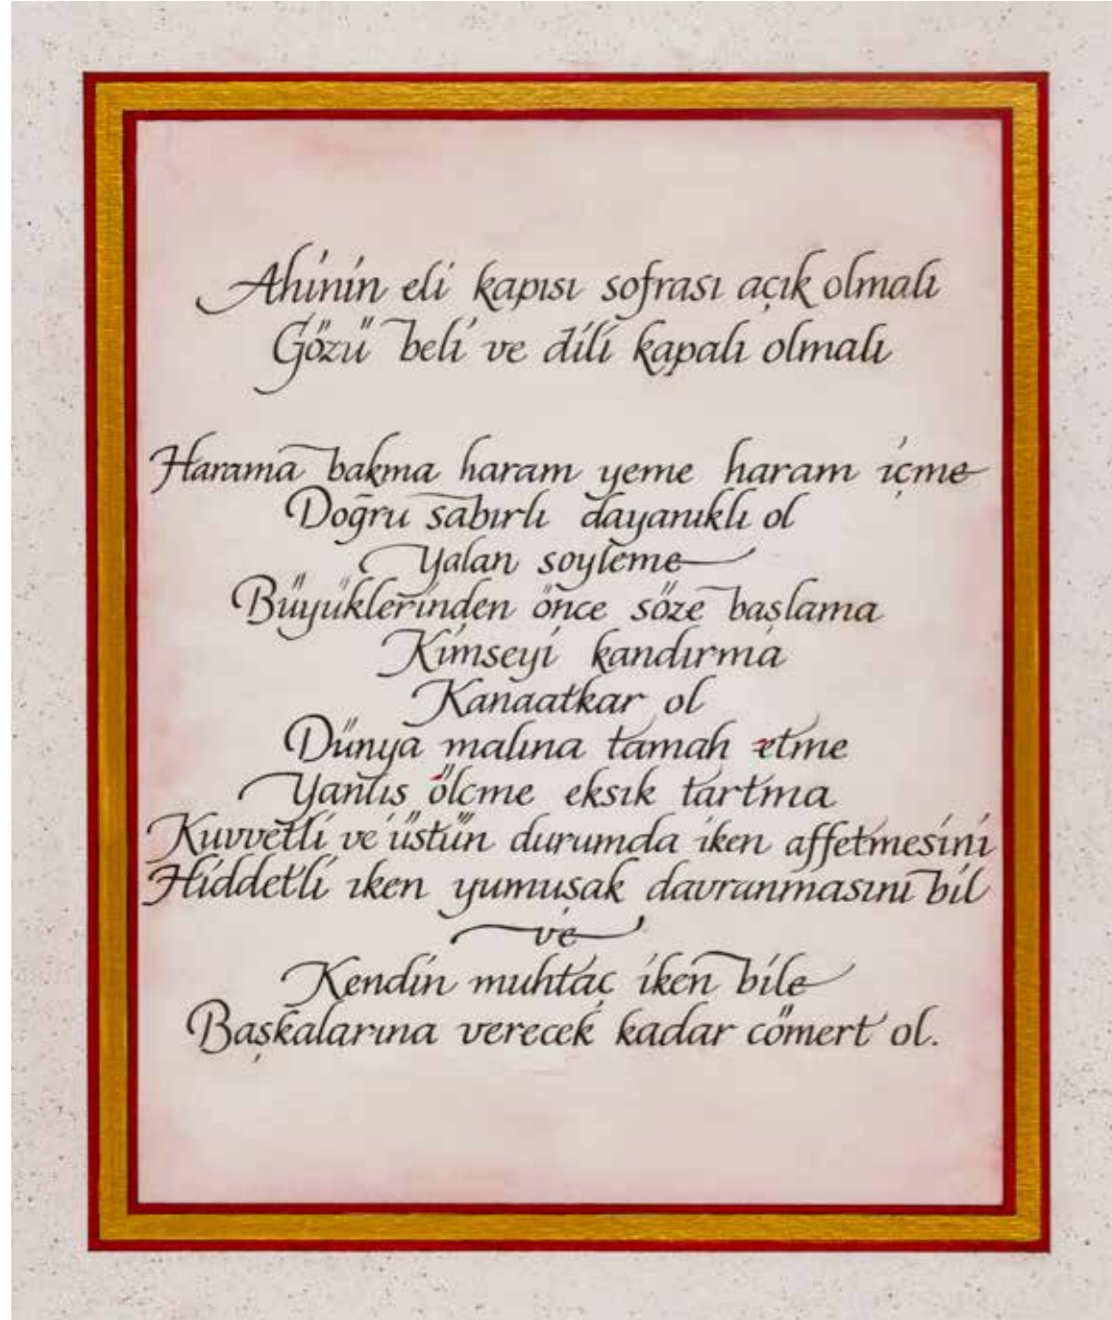 Ahinin eli kapısı sofrası açık olmalı
Gözü beli ve dili kapalı olmalı
Harama bakma haram yeme haram içme
Doğru sabırlı dayanıklı ol
Yalan soyleme
Büyüklerinden önce söze başlama
Kimseyi kandırma
Kanaatkar ol
Dünya malına tamah etme
Yanlıs ölcme eksık tartma
Kuvvetli ve üstün durumda iken affetmesini
Hiddetli iken yumuşak davranmasını bil
ve
Kendin muhtaç iken bile
Başkalarına verecek kadar cömert ol.